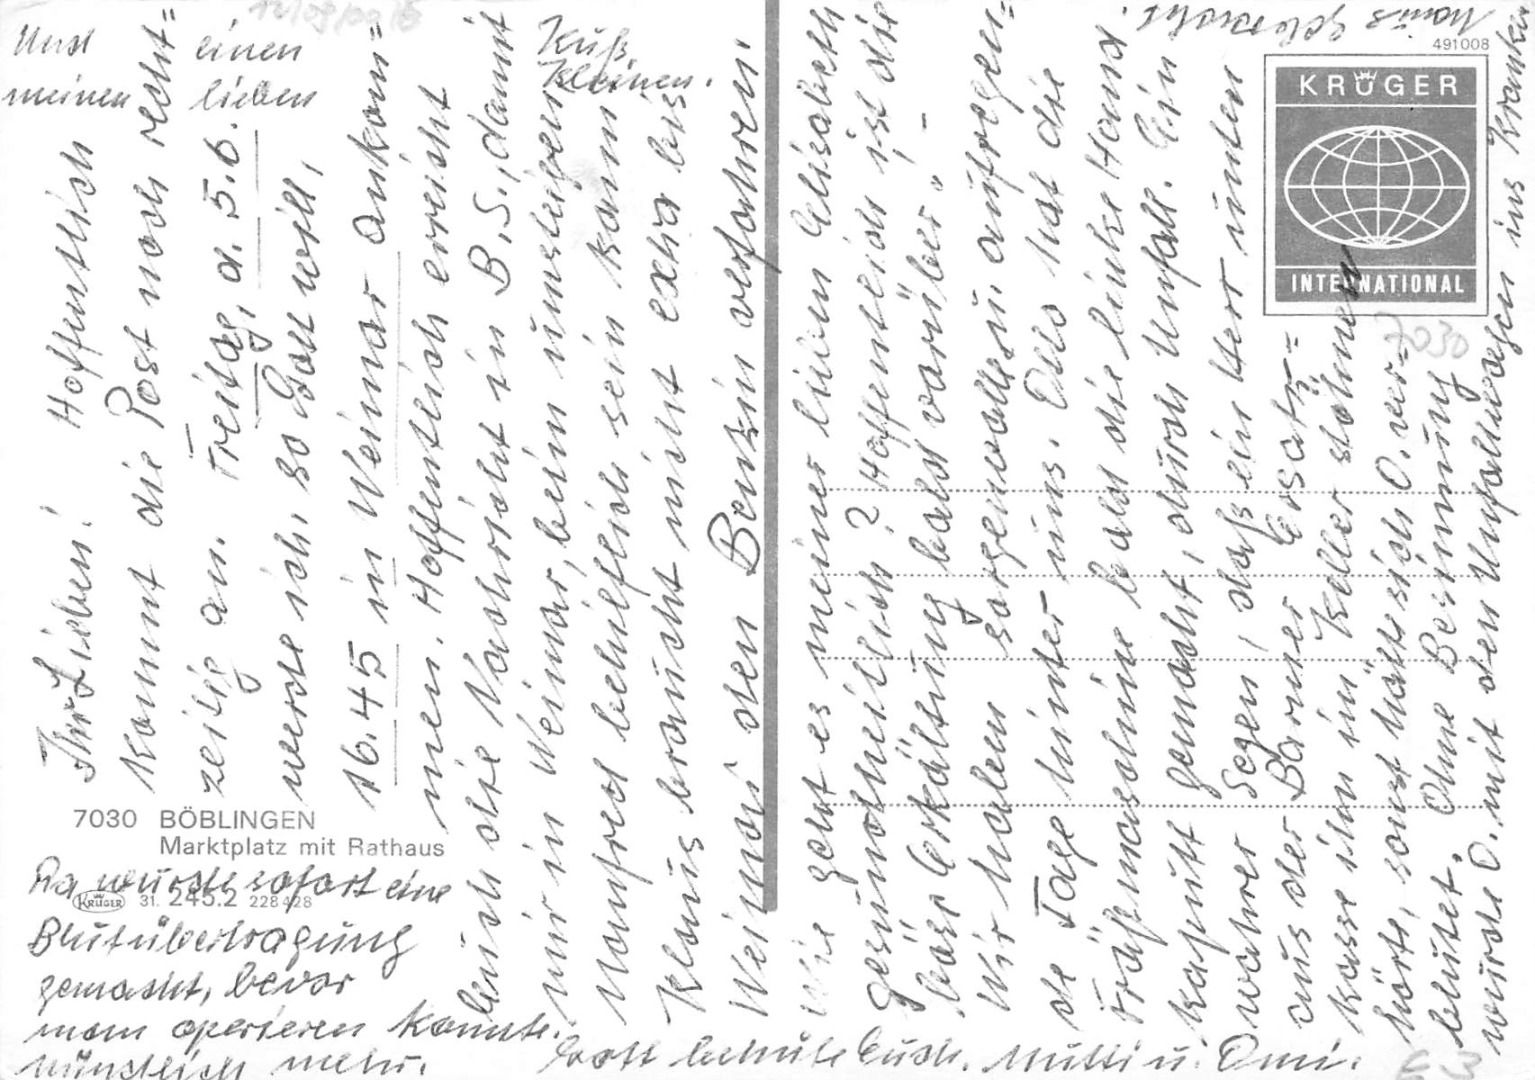 Ihr Lieben! Hoffentlich
kommt die Post noch recht=
zeitig an. Freitag, d. 5.6.
werde ich, so Gott will,
16.45 in Weimar ankom=
men. Hoffentlich erreicht
Euch die Nachricht in B.S., damit
mir in Weimar, beim umsteigen
Manfred behilflich sein kann
Klaus braucht nicht extra bis
Weimar den Benzin verfahren.
Wie geht es meiner lieben Elisabeth
gesundheitlich? Hoffentlich ist die
böse Erkältung bald vorüber.
Wir haben sorgenvolle u. aufregen=
de Tage hinter uns. Otto hat die
Fräsmaschine bald die linke Hand
kaputt gemacht, durch Unfall. Ein
wahrer Segen, daß ein Herr unten
aus der Barmer Ersatz=
kasse ihn im Keller stöhnen
hörte, sonst hätte sich O. ver=
blutet. Ohne Besinnung
wurde O. mit den Unfallwagen ins Kranken
haus gebracht.
Da wurde sofort eine
Blutübertragung
gemacht, bevor
man operieren konnte.
mündlich mehr.
Gott behüte Euch. Mutti u. Omi.
Und einen Kuß
meinen lieben Kleinen.
7030 BÖBLINGEN
Marktplatz mit Rathaus
KRÜGER 31. 245.2 228428
491008
KRÜGER
INTERNATIONAL
7030